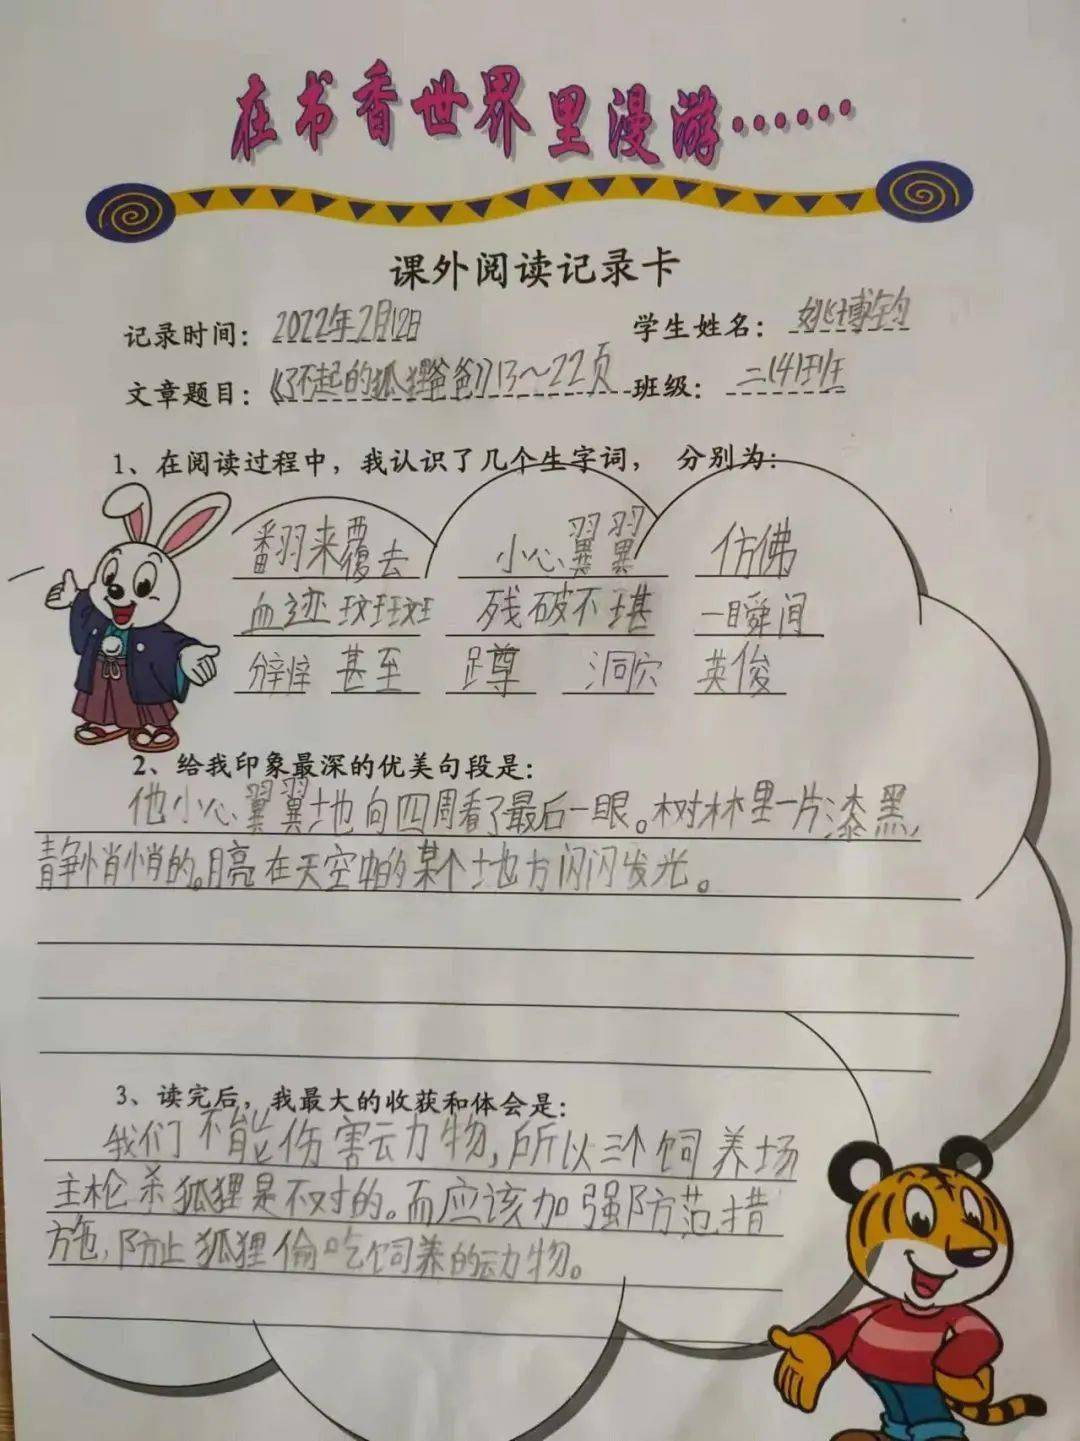 在书香世界里漫游……
课外阅读记录卡
记录时间：2022年2月12日 学生姓名：姚博钧
文章题目：《了不起的狐狸爸爸》13～22页 班级：二(4)班
1、在阅读过程中，我认识了几个生字词， 分别为：
翻来覆去 小心翼翼 仿佛
血迹斑斑 残破不堪 一瞬间
甚至 蹲 洞穴 英俊
2、给我印象最深的优美句段是：
他小心翼翼地向四周看了最后一眼。树林里一片漆黑，
静悄悄的。月亮在天空中的某个地方闪闪发光。
3、读完后，我最大的收获和体会是：
我们不能伤害动物，所以三个饲养场
主枪杀狐狸是不对的。而应该加强防范措
施，防止狐狸偷吃饲养的动物。